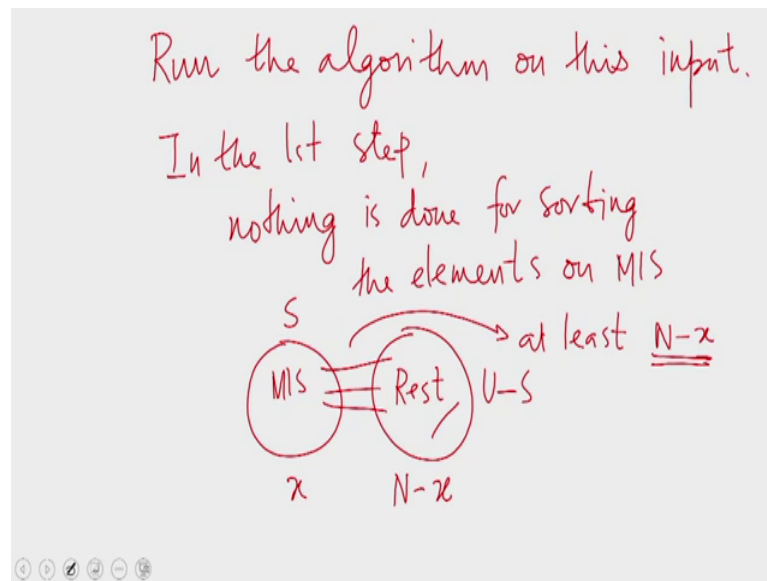 Run the algorithm on this input.
In the 1st step,
nothing is done for sorting
the elements on MIS
S
at least N-x
MIS
Rest
U-S
x
N-x